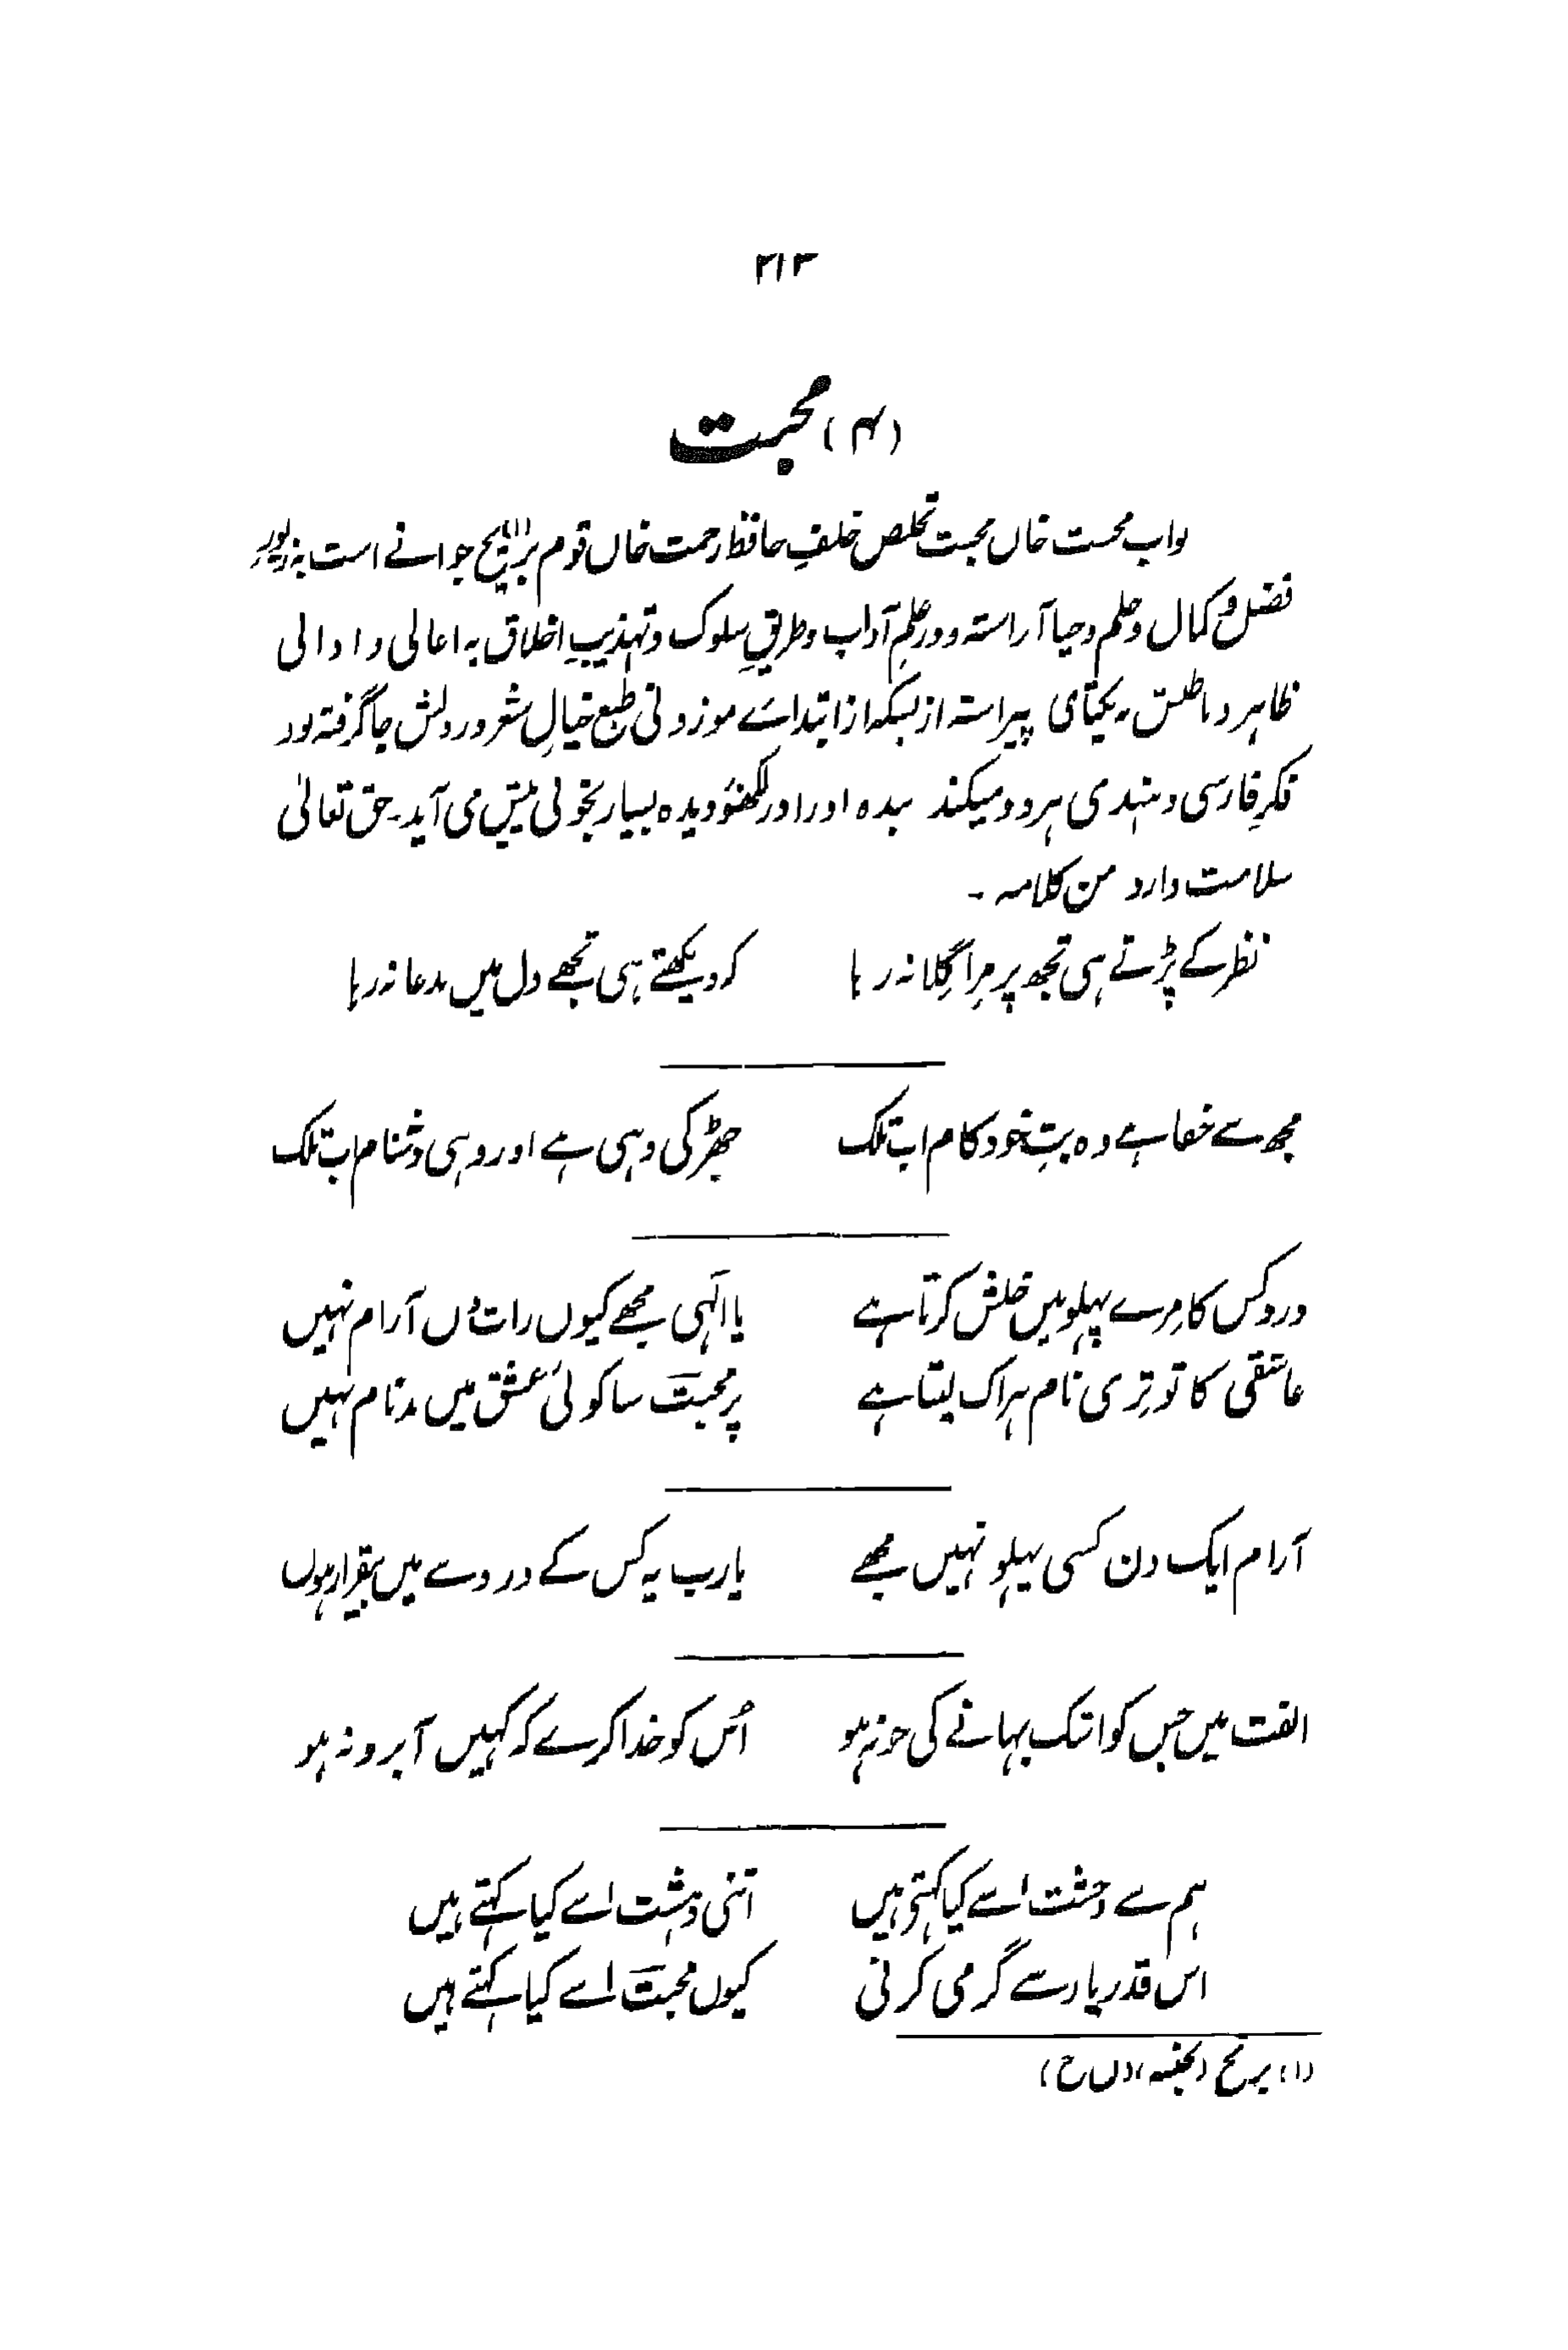 ۲۱۳
(۴) محبت
نواب محبت خاں محبت تخلص خلفِ حافظ رحمت خاں قوم بریچ(۱) جوانے است بہ زیورِ
فضل و کمال و حلم و حیا آراستہ و در علمِ آداب و طریقِ سلوک و تہذیبِ اخلاق بہ اعالی و ادانی
ظاہر و باطنش بہ یکتای پیراستہ از بسکہ از ابتداے موزونی طبع خیالِ شعر در دلش جا گرفتہ بود
فکرِ فارسی و ہندی ہر دو میکند بندہ او را در لکھنؤ دیدہ بسیار بخوبی پیش می آید۔ حق تعالیٰ
سلامت دارد من کلامہ ۔
نظر کے پڑتے ہی تجھ پر مِرا گِلا نہ رہا کہ دیکھتے ہی تجھے دل میں مدعا نہ رہا
مجھ سے خفا ہے وہ بتِ خود کام اب تلک جھڑکی وہی ہے اور وہی دشنام اب تلک
درد کس کا مِرے پہلو میں خلش کرتا ہے یا الٰہی مجھے کیوں رات دُں آرام نہیں
عاشقی کا تو تِری نام ہر اک لیتا ہے پر محبت سا کوئی عشق میں بدنام نہیں
آرام ایک دن کسی پہلو نہیں مجھے یارب یہ کس کے درد سے میں بیقرار ہوں
الفت میں جس کو اشک بہانے کی خو نہ ہو اُس کو خدا کرے کہ کہیں آبرو نہ ہو
ہم سے وحشت اسے کیا کہتی ہیں اتنی دہشت اسے کیا کہتے ہیں
اس قدر یار سے گرمی کرنی کیوں محبت اسے کیا کہتے ہیں
(۱) بریح (بجنسہ) (ں ح)